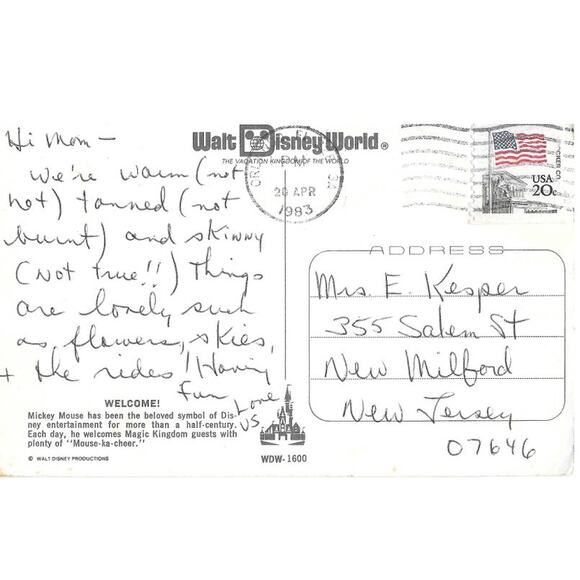 Hi Mom —
We're warm (not
hot) tanned (not
burnt) and skinny
(not true!!) Things
are lovely such
as, flowers, skies,
+ the rides! Having
fun
Love
US
Walt Disney World®
THE VACATION KINGDOM OF THE WORLD
20 APR
1983
USA
20c
ADDRESS
Mrs. E. Kesper
355 Salem St
New Milford
New Jersey
07646
WELCOME!
Mickey Mouse has been the beloved symbol of Dis-
ney entertainment for more than a half-century.
Each day, he welcomes Magic Kingdom guests with
plenty of "Mouse-ka-cheer."
© WALT DISNEY PRODUCTIONS
WDW-1600